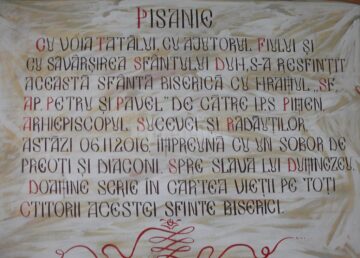 PISANIE
CU VOIA TATĂLUI, CU AJUTORUL FIULUI ȘI
CU SĂVÂRȘIREA SFÂNTULUI DUH, S-A RESFINȚIT
ACEASTĂ SFÂNTĂ BISERICĂ CU HRAMUL „SF.
AP. PETRU ȘI PAVEL” DE CĂTRE I.P.S. PIMEN,
ARHIEPISCOPUL SUCEVEI ȘI RĂDĂUȚILOR,
ASTĂZI 06.11.2016, ÎMPREUNĂ CU UN SOBOR DE
PREOȚI ȘI DIACONI, SPRE SLAVA LUI DUMNEZEU.
DOAMNE SCRIE ÎN CARTEA VIEȚII PE TOȚI
CTITORII ACESTEI SFINTE BISERICI.